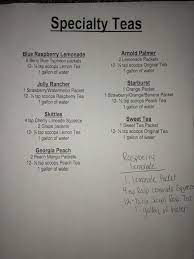 Specialty Teas
Blue Raspberry Lemonade
Berry Blue Typhoon packets
12- ¼ tsp scoops Lemon Tea
1 gallon of water
Jolly Rancher
1 Strawberry/Watermelon Packet
12- ¼ tap scoops Raspberry Tea
1 gallon of water
Skittles
4 tsp Cherry Limeade Squeeze
2 Grape packets
12- ¼ tsp scoops Lemon Tea
1 gallon of water
Georgia Peach
2 Peach Mango Packets
12- ¼ tsp scoops Lemon Tea
1 gallon of water
Arnold Palmer
2 Lemonade Packets
12- ¼ tsp scoops Original Tea
1 gallon of water
Starburst
1 Orange Packet
1 Strawberry/Orange/Banana Packet
12- ¼ tsp scoops Original Tea
1 gallon of water
Sweet Tea
1 Sweet Tea Packet
12- ¼ tsp scoops Original Tea
1 gallon of water
Raspberry
Lemonade
1 Lemonade Packet
4 tsp Rasp Lemonade Squeeze
12- ¼ tsp scoops Rasp Tea
1 gallon of Water